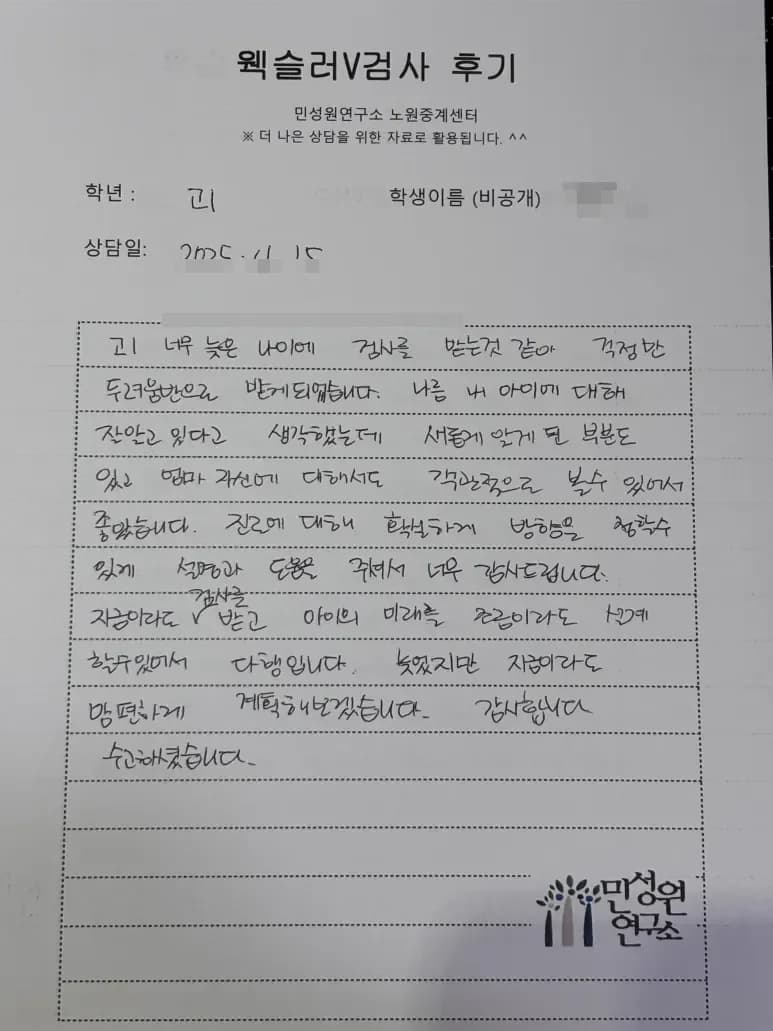 웩슬러V검사 후기
민성원연구소 노원중계센터
※ 더 나은 상담을 위한 자료로 활용됩니다. ^^
학년 : 고1 학생이름 (비공개)
상담일: 2025. 11 15
고1 너무 늦은 나이에 검사를 받는것 같아 걱정반
두려움반으로 받게되었습니다. 나름 내 아이에 대해
잘알고 있다고 생각했는데 새롭게 알게 된 부분도
있고 엄마 자신에 대해서도 객관적으로 볼수 있어서
좋았습니다. 진로에 대해 확실하게 방향을 정할수
있게 설명과 도움을 주셔서 너무 감사드립니다.
지금이라도 검사를 받고 아이의 미래를 조금이라도 설계
할수있어서 다행입니다. 늦었지만 지금이라도
맘 편하게 계획해보겠습니다. 감사합니다
수고하셨습니다.
민성원
연구소